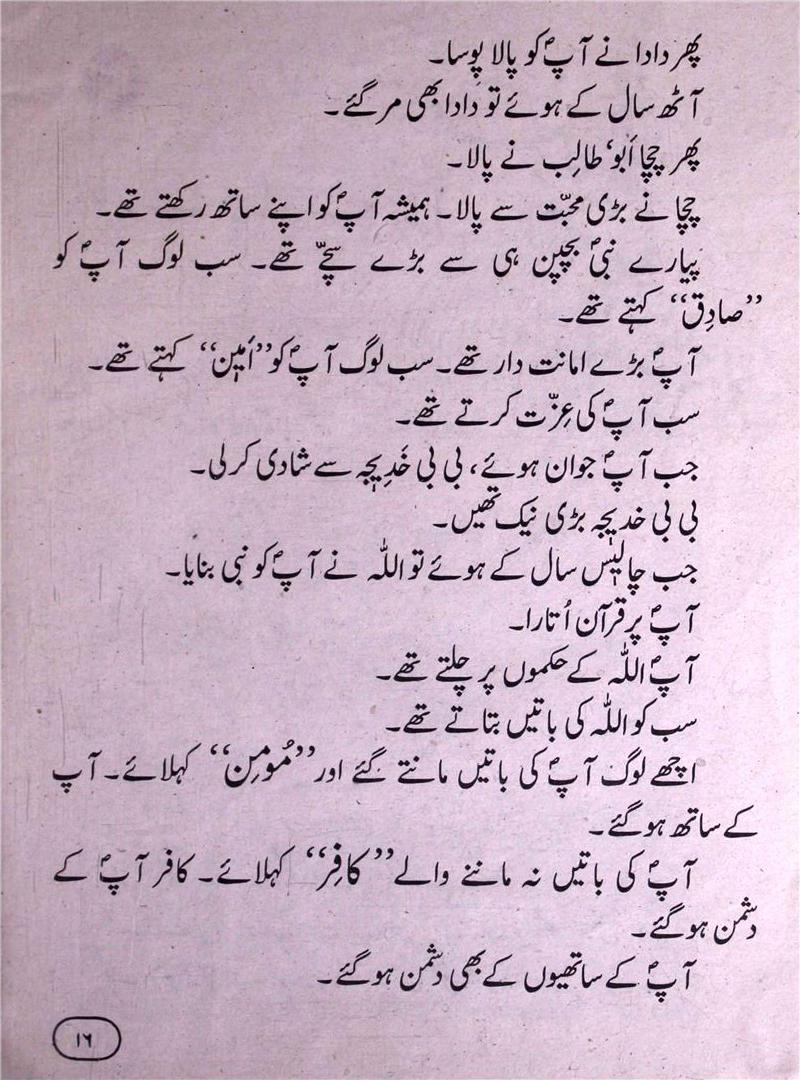 پھر دادا نے آپؐ کو پالا پوسا۔
آٹھ سال کے ہوئے تو دادا بھی مر گئے۔
پھر چچا اَبوُ طالِب نے پالا۔
چچا نے بڑی محبّت سے پالا۔ ہمیشہ آپؐ کو اپنے ساتھ رکھتے تھے۔
پیارے نبیؐ بچپن ہی سے بڑے سچّے تھے۔ سب لوگ آپؐ کو
”صادِق“ کہتے تھے۔
آپؐ بڑے امانت دار تھے۔ سب لوگ آپؐ کو ”اَمِین“ کہتے تھے۔
سب آپؐ کی عِزّت کرتے تھے۔
جب آپؐ جوان ہوئے، بی بی خَدِیجہ سے شادی کر لی۔
بی بی خدیجہ بڑی نیک تھیں۔
جب چالیس سال کے ہوئے تو اللہ نے آپؐ کو نبی بنایا۔
آپؐ پر قرآن اُتارا۔
آپؐ اللہ کے حکموں پر چلتے تھے۔
سب کو اللہ کی باتیں بتاتے تھے۔
اچھے لوگ آپؐ کی باتیں مانتے گئے اور ”مُومِن“ کہلائے۔ آپ
کے ساتھ ہو گئے۔
آپؐ کی باتیں نہ ماننے والے ”کافِر“ کہلائے۔ کافر آپؐ کے
دشمن ہو گئے۔
آپؐ کے ساتھیوں کے بھی دشمن ہو گئے۔
۱۶